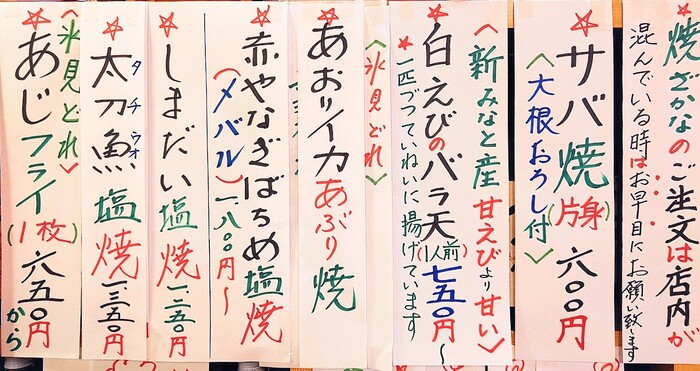 焼さかなのご注文は店内が
混んでいる時はお早目にお願い致します
サバ焼(片身)六〇〇円
〈大根おろし付〉
〈新みなと産甘えびより甘い〉
白えびのバラ天(1人前)七五〇円~
一匹づつていねいに揚げています
〈氷見どれ〉
あおりイカあぶり焼
赤やなぎばちめ塩焼
(メバル)一、八〇〇円~
しまだい塩焼一、二五〇円
太刀魚塩焼一、三五〇円
タチウオ
〈氷見どれ〉
あじフライ(1枚)六五〇円から